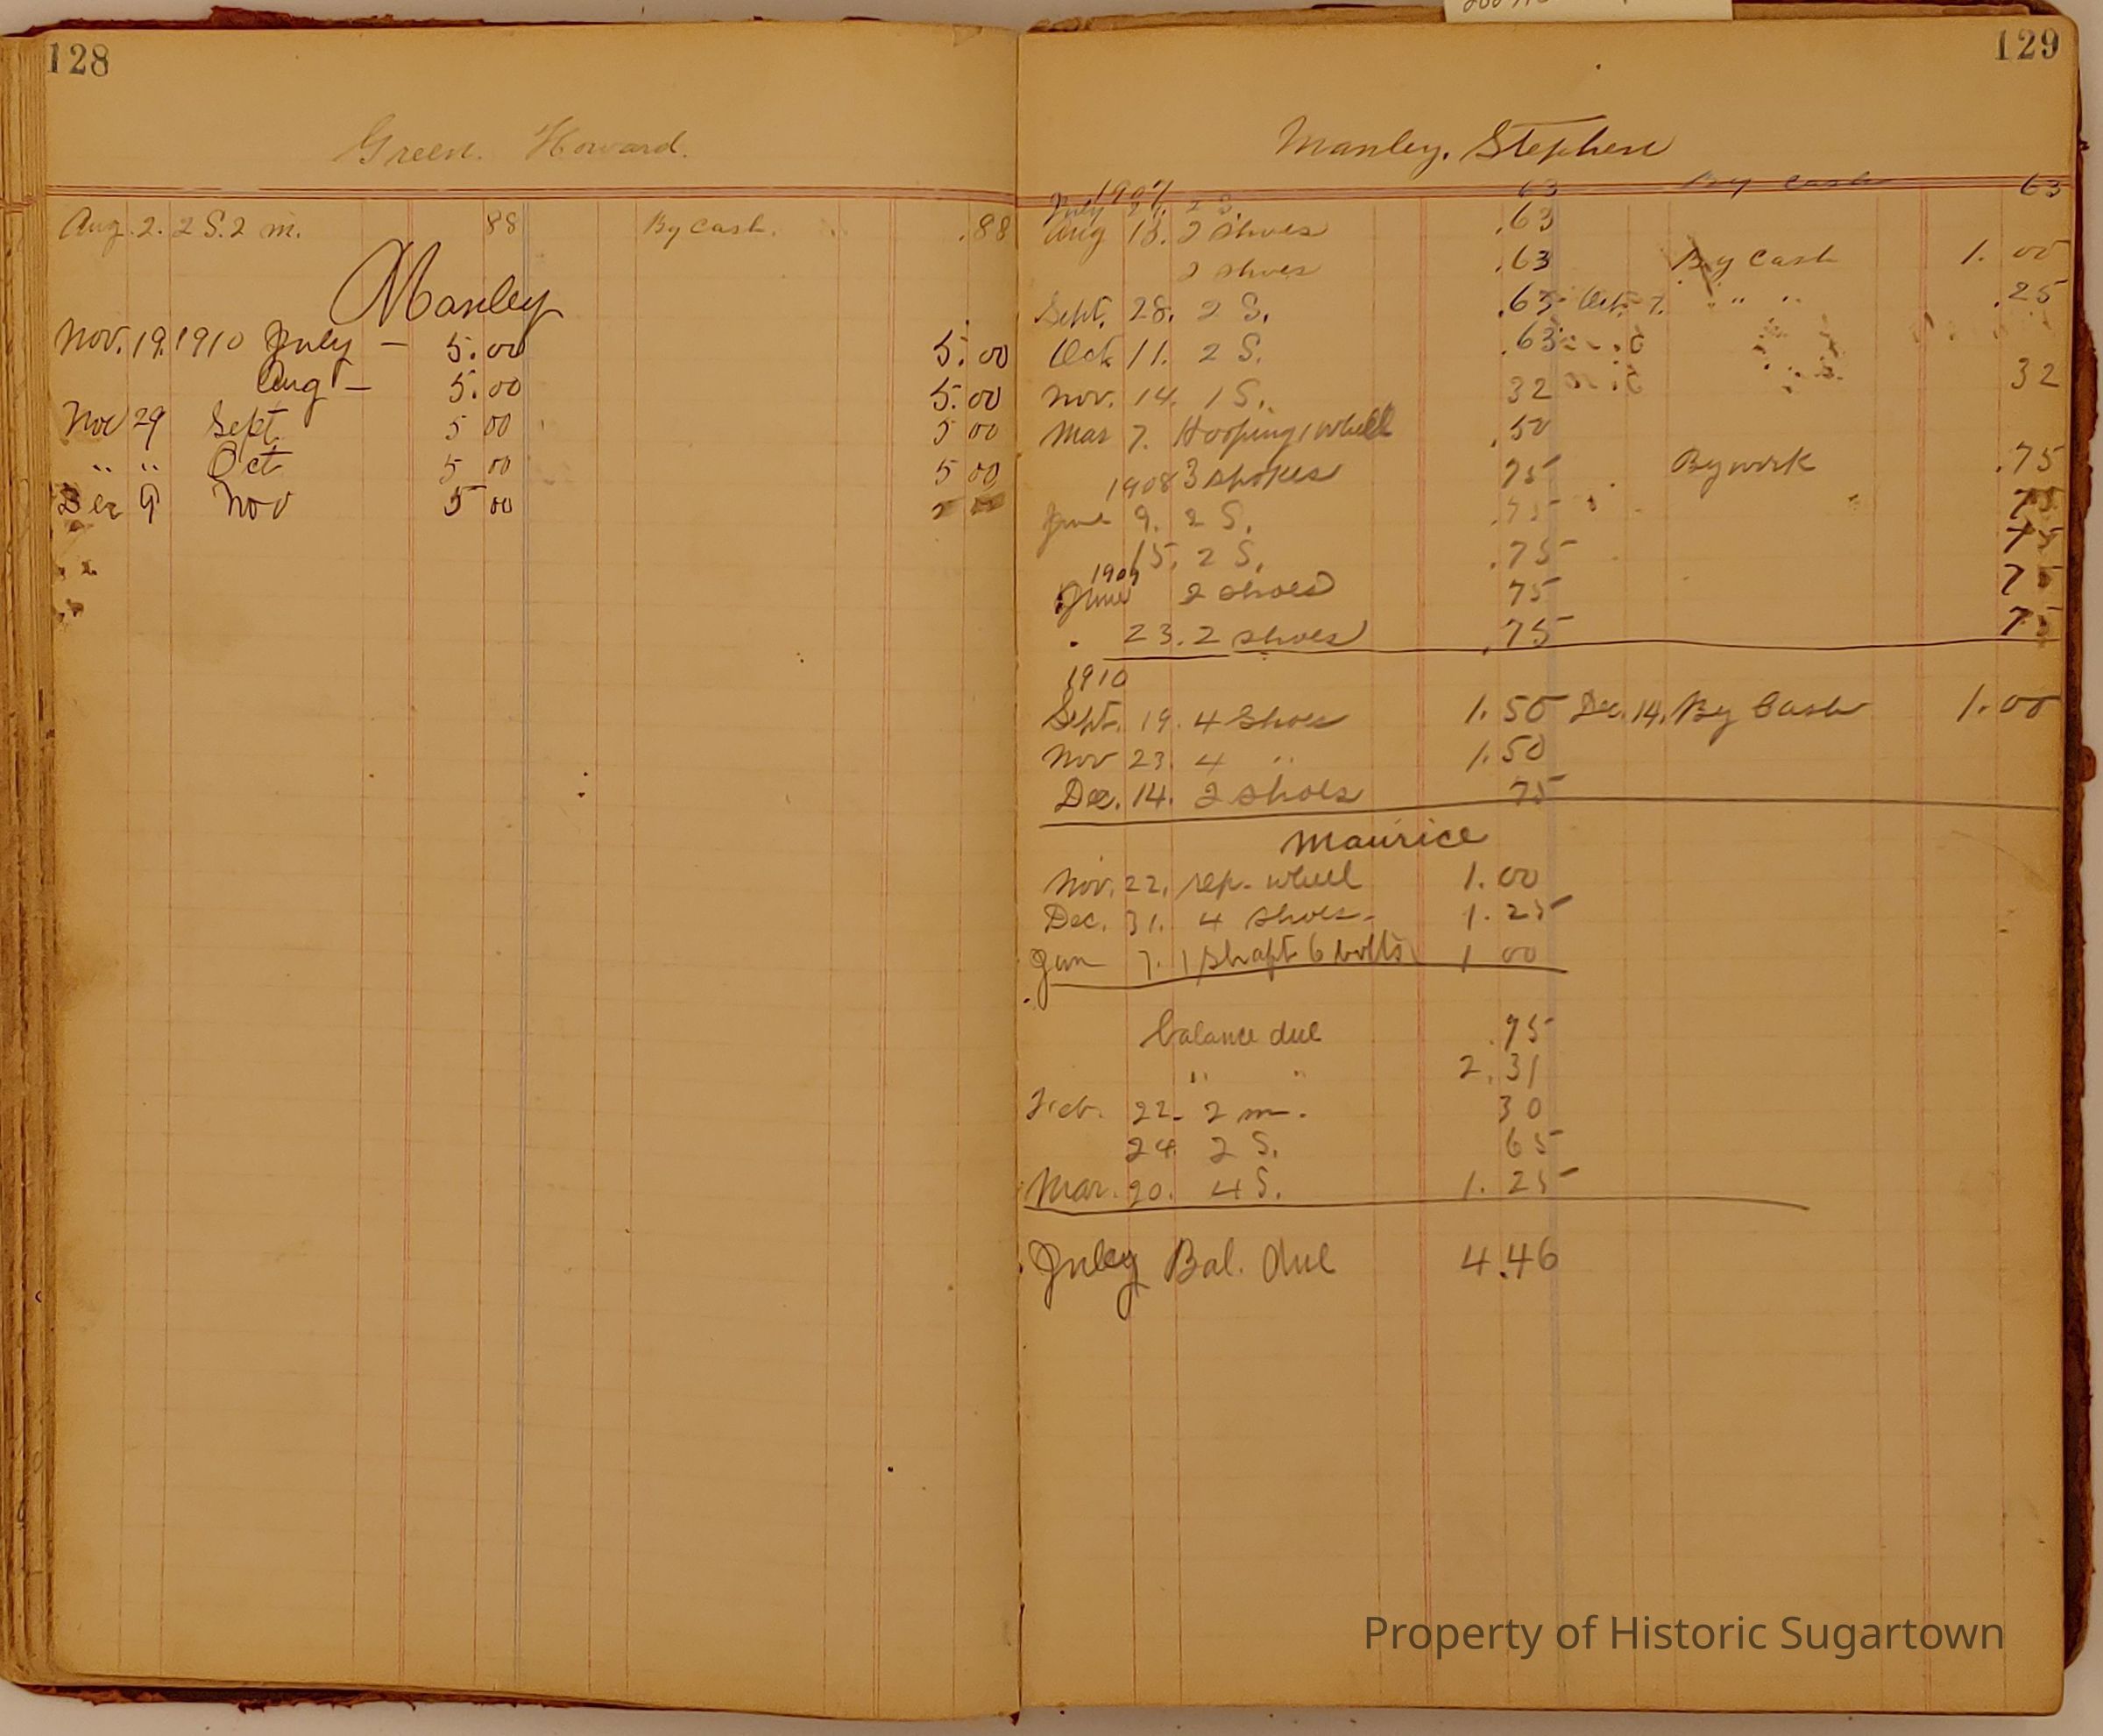 128
Green. Howard.
Aug. 2. 2 S. 2 m. 88 By Cash. .88
Manley
Nov. 19. 1910 July — 5.00 5.00
Aug — 5.00 5.00
Nov 29 Sept. 5 00 5 00
" " Oct 5 00 5 00
Dec 9 Nov 5 00
129
Manley, Stephen
1907
July 27. 2 S. 63 By Cash 63
Aug 13. 2 shoes .63
2 shoes .63 By Cash 1.00
Sept. 28. 2 S. .63 Oct. 7. " " .25
Oct 11. 2 S. .63
Nov. 14. 1 S. 32 32
Mar 7. Hooping 1 wheel .50
1908 3 spokes 75 By work .75
June 9. 2 S. .75 75
15. 2 S. .75 75
1909
June 2 shoes 75 75
23. 2 shoes .75 75
1910
Sept. 19. 4 Shoes 1.50 Dec. 14. By Cash 1.00
Nov 23. 4 " 1.50
Dec. 14. 2 shoes 75
Maurice
Nov. 22. rep. wheel 1.00
Dec. 31. 4 shoes 1.25
Jan 7. 1 shaft 6 bolts 1 00
balance due .75
" " 2.31
Feb. 22. 2 m. 30
24. 2 S. 65
Mar. 20. 4 S. 1.25
July Bal. due 4.46
Property of Historic Sugartown